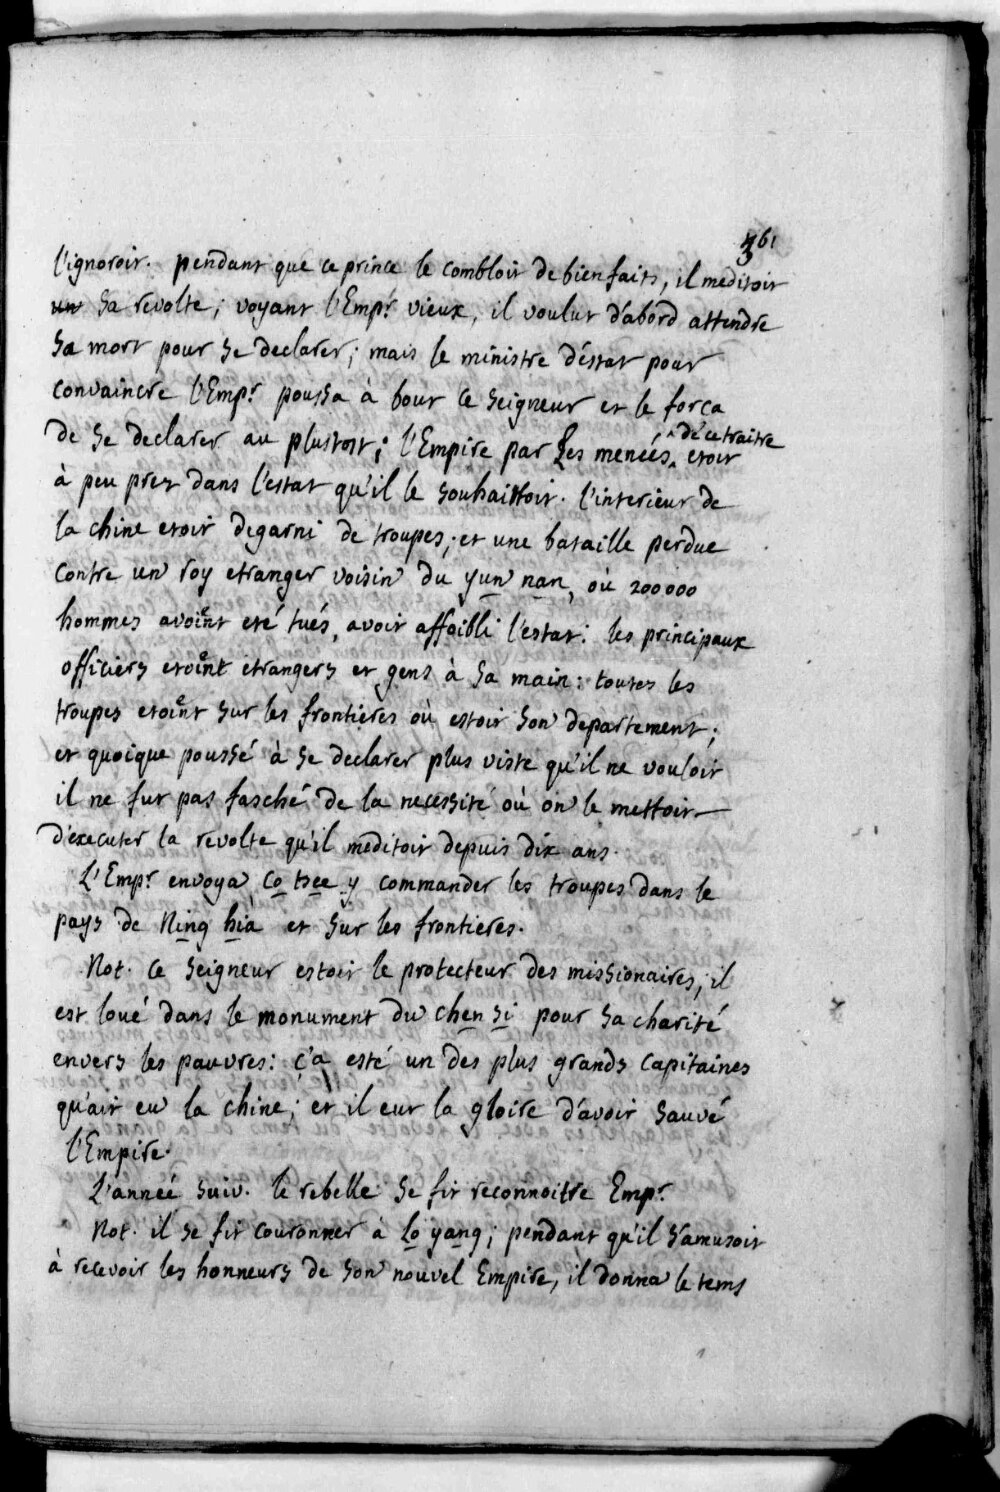 361
l'ignoroit. pendant que ce prince le combloit de bienfaits, il meditoit
un sa revolte; voyant l'Emp.r vieux, il voulut d'abord attendre
sa mort pour se declarer; mais le ministre d'éstat pour
convaincre l'Emp.r poussa à bout ce seigneur et le força
de se declarer au plustost; l'Empire par les menées ^ de ce traitre etoit
à peu prez dans l'estat qu'il le souhaittoit. l'interieur de
la chine etoit degarni de troupes; et une bataille perdue
contre un roy etranger voisin du yun nan, où 200000
hommes avoient eté tués, avoit affoibli l'estat: les principaux
officiers etoient etrangers et gens à sa main: toutes les
troupes etoient sur les frontieres où estoit son departement;
et quoique poussé à se declarer plus viste qu'il ne vouloit
il ne fut pas fasché de la necessité où on le mettoit
d'executer la revolte qu'il meditoit depuis dix ans.
L'Emp.r envoya Co tsee y commander les troupes dans le
pays de Ning hia et sur les frontieres.
Not. ce seigneur estoit le protecteur des missionaires; il
est loué dans le monument du chen si pour sa charité
envers les pauvres: ç'a esté un des plus grands capitaines
qu'ait eu la chine; et il eut la gloire d'avoir sauvé
l'Empire.
L'année suiv. le rebelle se fit reconnoitre Emp.r
Not. il se fit couronner à Lo yang; pendant qu'il s'amusoit
à recevoir les honneurs de son nouvel Empire, il donna le tems